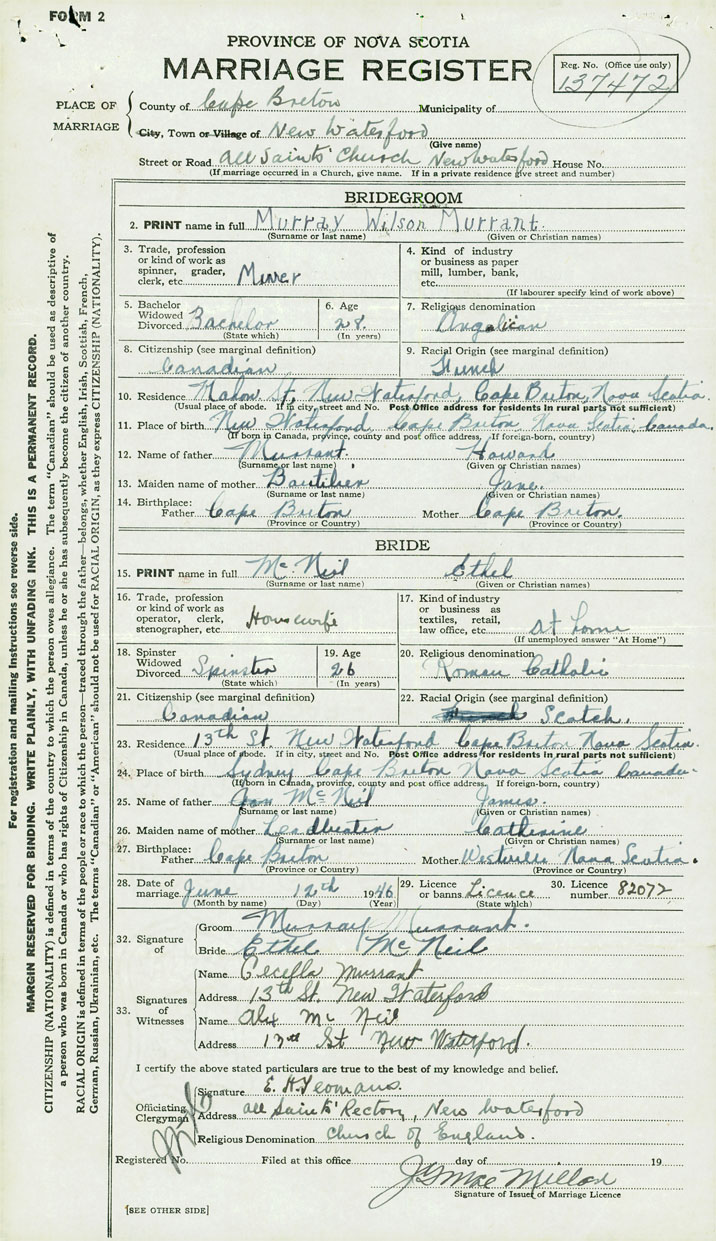 FORM 2
PROVINCE OF NOVA SCOTIA
MARRIAGE REGISTER
Reg. No. (Office use only)
137472
PLACE OF MARRIAGE
County of Cape Breton Municipality of
City, Town or Village of New Waterford
(Give name)
Street or Road All Saints' Church New Waterford House No.
(If marriage occurred in a Church, give name. If in a private residence give street and number)
BRIDEGROOM
2. PRINT name in full Murray Wilson Murrant
(Surname or last name) (Given or Christian names)
3. Trade, profession or kind of work as spinner, grader, clerk, etc. Miner
4. Kind of industry or business as paper mill, lumber, bank, etc.
(If labourer specify kind of work above)
5. Bachelor Widowed Divorced Bachelor
(State which)
6. Age 28.
(In years)
7. Religious denomination
Anglican
8. Citizenship (see marginal definition)
Canadian
9. Racial Origin (see marginal definition)
French
10. Residence Mahon St, New Waterford, Cape Breton, Nova Scotia.
(Usual place of abode. If in city, street and No. Post Office address for residents in rural parts not sufficient)
11. Place of birth New Waterford Cape Breton Nova Scotia, Canada.
(If born in Canada, province, county and post office address. If foreign-born, country)
12. Name of father Murrant. Howard
(Surname or last name) (Given or Christian names)
13. Maiden name of mother Jane.
(Surname or last name) (Given or Christian names)
14. Birthplace: Father Cape Breton Mother Cape Breton.
(Province or Country) (Province or Country)
BRIDE
15. PRINT name in full McNeil Ethel
(Surname or last name) (Given or Christian names)
16. Trade, profession or kind of work as operator, clerk, stenographer, etc. Housewife
17. Kind of industry or business as textiles, retail, law office, etc. at home
(If unemployed answer "At Home")
18. Spinster Widowed Divorced Spinster
(State which)
19. Age 26
(In years)
20. Religious denomination
Roman Catholic
21. Citizenship (see marginal definition)
Canadian
22. Racial Origin (see marginal definition)
Scotch.
23. Residence 13th St. New Waterford Cape Breton Nova Scotia.
(Usual place of abode. If in city, street and No. Post Office address for residents in rural parts not sufficient)
24. Place of birth Sydney Cape Breton Nova Scotia Canada.
(If born in Canada, province, county and post office address. If foreign-born, country)
25. Name of father McNeil James.
(Surname or last name) (Given or Christian names)
26. Maiden name of mother Leadbeater Catherine
(Surname or last name) (Given or Christian names)
27. Birthplace: Father Cape Breton Mother Westville Nova Scotia.
(Province or Country) (Province or Country)
28. Date of marriage June 12th 1946
(Month by name) (Day) (Year)
29. Licence or banns Licence
(State which)
30. Licence number 82072
32. Signature of
Groom Murray Murrant.
Bride Ethel McNeil
33. Signatures of Witnesses
Name Cecella Murrant
Address 13th St. New Waterford
Name Alex McNeil
Address St New Waterford.
I certify the above stated particulars are true to the best of my knowledge and belief.
Officiating Clergyman
Signature E. H. Yeomans.
Address All Saints' Rectory, New Waterford
Religious Denomination Church of England.
Registered No. Filed at this office day of 19
J G MacMillan
Signature of Issuer of Marriage Licence
[SEE OTHER SIDE]
For registration and mailing instructions see reverse side.
MARGIN RESERVED FOR BINDING. WRITE PLAINLY, WITH UNFADING INK. THIS IS A PERMANENT RECORD.
CITIZENSHIP (NATIONALITY) is defined in terms of the country to which the person owes allegiance. The term "Canadian" should be used as descriptive of
a person who was born in Canada or who has rights of Citizenship in Canada, unless he or she has subsequently become the citizen of another country.
RACIAL ORIGIN is defined in terms of the people or race to which the person—traced through the father—belongs, whether English, Irish, Scottish, French,
German, Russian, Ukrainian, etc. The terms "Canadian" or "American" should not be used for RACIAL ORIGIN, as they express CITIZENSHIP (NATIONALITY).